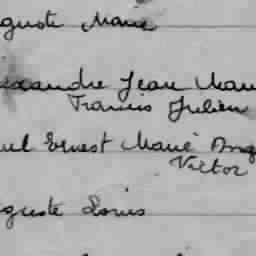 guste Marie
exandre Jean Mari
Francis Julien
ul Ernest Marie Aug
Victor
guste Louis